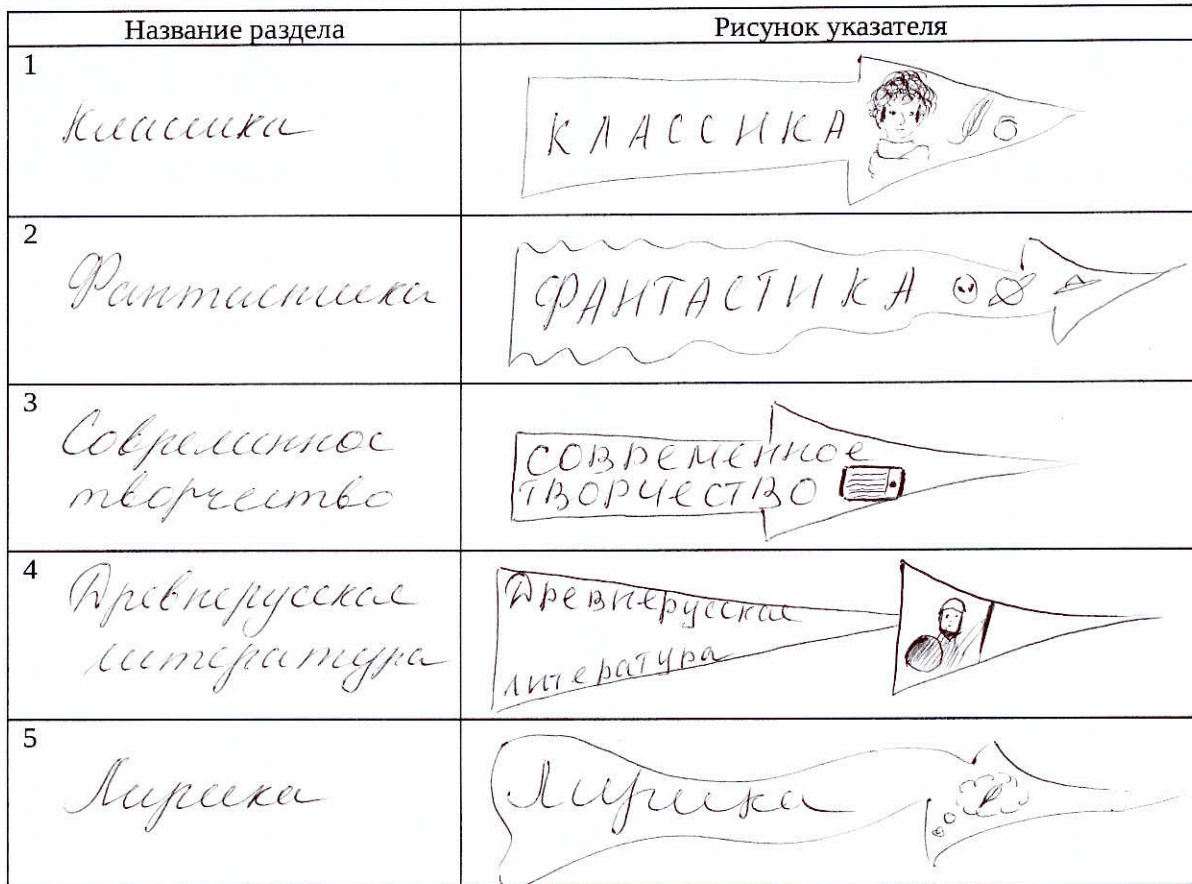 Название раздела
Рисунок указателя
1
Классика
КЛАССИКА
2
Фантастика
ФАНТАСТИКА
3
Современное
творчество
СОВРЕМЕННОЕ
ТВОРЧЕСТВО
4
Древнерусская
литература
Древнерусская
литература
5
Лирика
Лирика